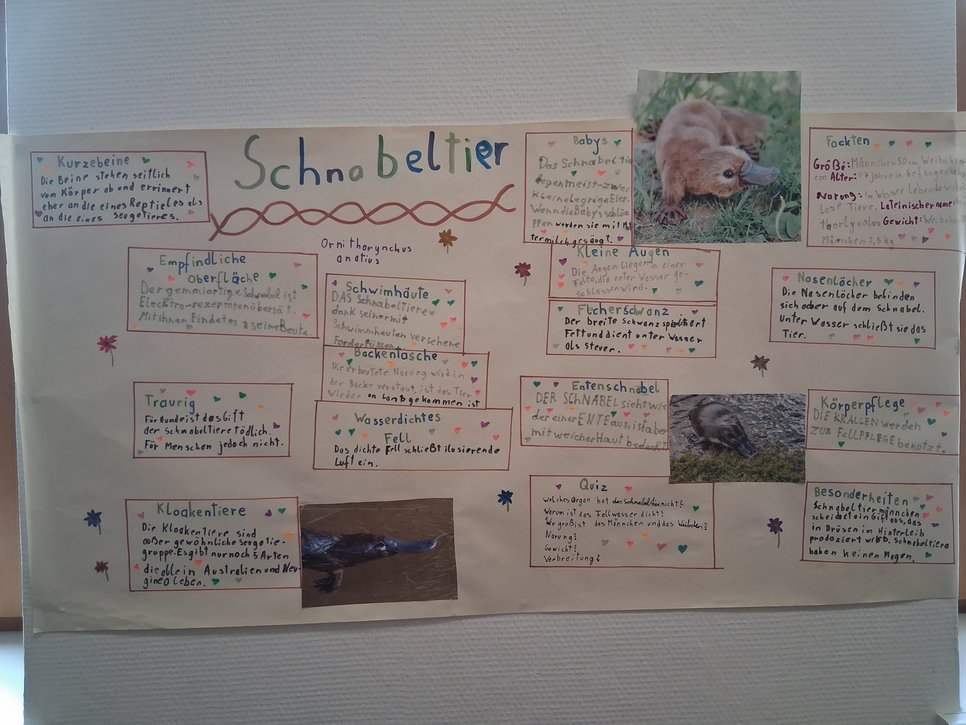 Schnabeltier
Ornithorynchus
anatius
Kurzebeine
Die Beine stehen seitlich
vom Körper ab und errinnert
eher an die eines Reptieles als
an die eines Seegetieres.
Empfindliche
Oberfläche
Der gemmiartige Schnabel ist
Elecktro-rezeptoten übersät.
Mit ihnen Findetes seine Beute.
Schwimhäute
DAS Schnabeltiere
dank seiner mit
Schwimnhauten versehene
Forderfüssen
Backentasche
Die erbeutete Narung wird in
der Backe verstaut, ist das Tier
wieder an Land gekommen ist
Traurig
Für Hunde ist das Gift
der Schnabeltiere tödlich.
Für Menschen jedoch nicht.
Wasserdichtes
Fell
Das dichte Fell schließt
Luft ein.
Kloakentiere
Die Kloakentiere sind
außer gewöhnliche
gruppe: Es gibt nur noch 5 Arten
die alle in Australien und Neu
gineo Leben.
Babys
Das Schnabeltie
legen meist zwei
Kleine Eier.
Wenn die Babys schlü
pfen werden sie mit Mut
termilch gesäugt.
Kleine Augen
Die Augen liegen in einer
Falte, die unter Wasser ge-
schlossen wird.
Fücherschwanz
Der breite Schwanz speichert
Fett und dient unter Wasser
als Steuer.
Entenschnabel
DER SCHNABEL sieht wie
der einer ENTE aus, ist aber
mit weicher Haut bedeckt
Quiz
Welches Organ hat das Schnabeltier nicht?
Warum ist das Fell wasser dicht?
Wie groß ist das Männchen und das Weibchen?
Narung?
Gewicht?
Verbreitung?
Fackten
Größe: Männchen 50 cm Weibchen
cm Alter: 17 Jahre in Gefangenschaft
Narung: Im Wasser Lebende wirbel
lose Tiere. Lateinischername:
Gewicht: Weibchen
Männchen
Nasenlöcher
Die Nasenlöcher befinden
sich ober auf dem Schnabel.
Unter Wasser schließt sie das
Tier.
Körperpflege
DIE KRALLEN werden
ZUR FELLPFLEGE benutzt.
Besonderheiten
Schnabeltier männchen
scheidet ein Gift aus, das
in Drüsen im Hinterleib
prodoziert wird. Schnabeltiere
haben keinen Magen.